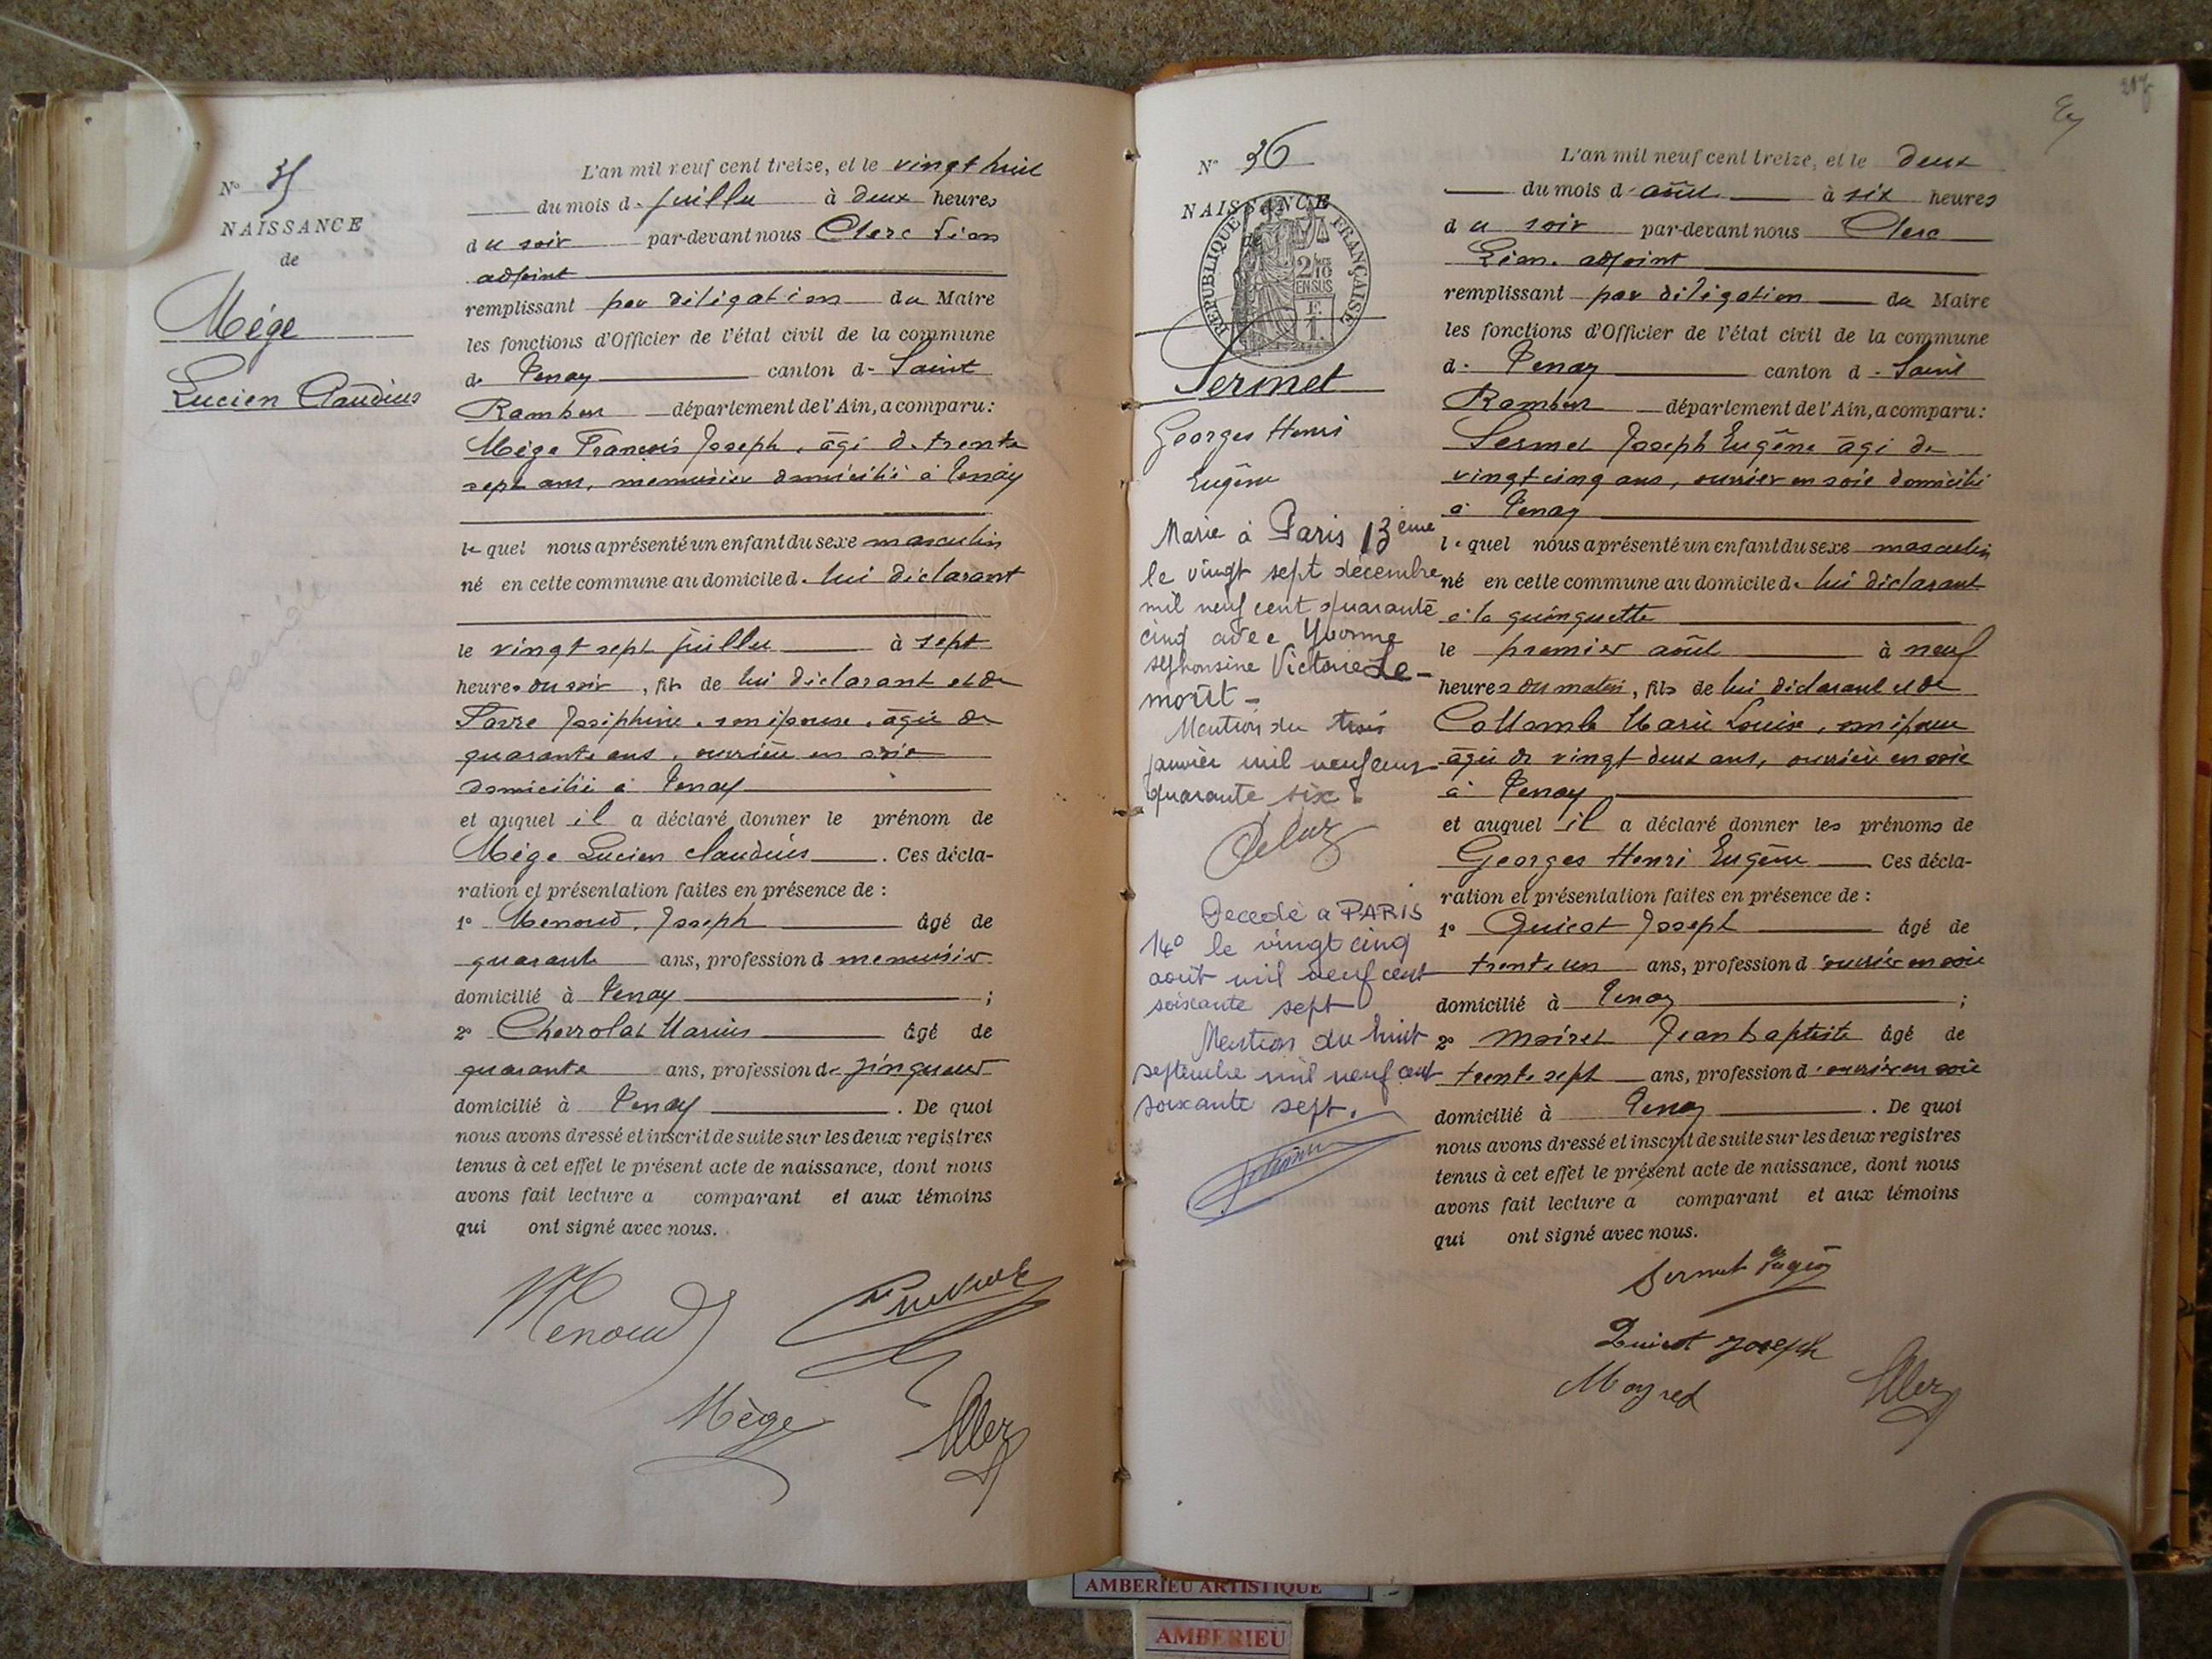 N° 35
NAISSANCE
de
Mége
Lucien Claudius
L'an mil neuf cent treize, et le vingt huit
du mois de juillet à deux heures
du soir par-devant nous Clerc Léon
adjoint
remplissant par délégation du Maire
les fonctions d'Officier de l'état civil de la commune
de Tenay canton de Saint
Rambert département de l'Ain, a comparu :
Mége François Joseph, âgé de trente
sept ans, menuisier domicilié à Tenay
lequel nous a présenté un enfant du sexe masculin
né en cette commune au domicile de lui déclarant
le vingt sept juillet à sept
heures du soir, fils de lui déclarant et de
Favre Joséphine, son épouse, âgée de
quarante ans, ouvrière en soie
domiciliée à Tenay
et auquel il a déclaré donner le prénom de
Mége Lucien Claudius. Ces décla-
ration et présentation faites en présence de :
1° Menoud, Joseph âgé de
quarante ans, profession de menuisier
domicilié à Tenay ;
2° Chevrolat Marius âgé de
quarante ans, profession de zingueur
domicilié à Tenay. De quoi
nous avons dressé et inscrit de suite sur les deux registres
tenus à cet effet le présent acte de naissance, dont nous
avons fait lecture a comparant et aux témoins
qui ont signé avec nous.
Menoud
Mège
N° 36
NAISSANCE
de
REPUBLIQUE FRANÇAISE
2/10
EN SUS
Sermet
Georges Henri
Eugène
Marié à Paris 13ème
le vingt sept décembre
mil neuf cent quarante
cinq avec Yvonne
Alphonsine Victorie Le-
mort -
Mention du trois
janvier mil neuf cent
quarante six.
Decedé a PARIS
14° le vingt cinq
août mil neuf cent
soixante sept
Mention du huit
septembre mil neuf cent
soixante sept.
L'an mil neuf cent treize, et le deux
du mois d'août à six heures
du soir par-devant nous Clerc
Léon. adjoint
remplissant par délégation du Maire
les fonctions d'Officier de l'état civil de la commune
de Tenay canton de Saint
Rambert département de l'Ain, a comparu :
Sermet Joseph Eugène âgé de
vingt cinq ans, ouvrier en soie domicilié
à Tenay
lequel nous a présenté un enfant du sexe masculin
né en cette commune au domicile de lui déclarant
à la guinguette
le premier août à neuf
heures du matin, fils de lui déclarant et de
Collomb Marie Louise, son épouse
âgée de vingt deux ans, ouvrière en soie
à Tenay
et auquel il a déclaré donner les prénoms de
Georges Henri Eugène Ces décla-
ration et présentation faites en présence de :
1° Quicot Joseph âgé de
trente un ans, profession d'ouvrier en soie
domicilié à Tenay ;
2° Moiret Jean baptiste âgé de
trente sept ans, profession d'ouvrier en soie
domicilié à Tenay. De quoi
nous avons dressé et inscrit de suite sur les deux registres
tenus à cet effet le présent acte de naissance, dont nous
avons fait lecture a comparant et aux témoins
qui ont signé avec nous.
Sermet
Joseph
AMBERIEU ARTISTIQUE
AMBERIEU